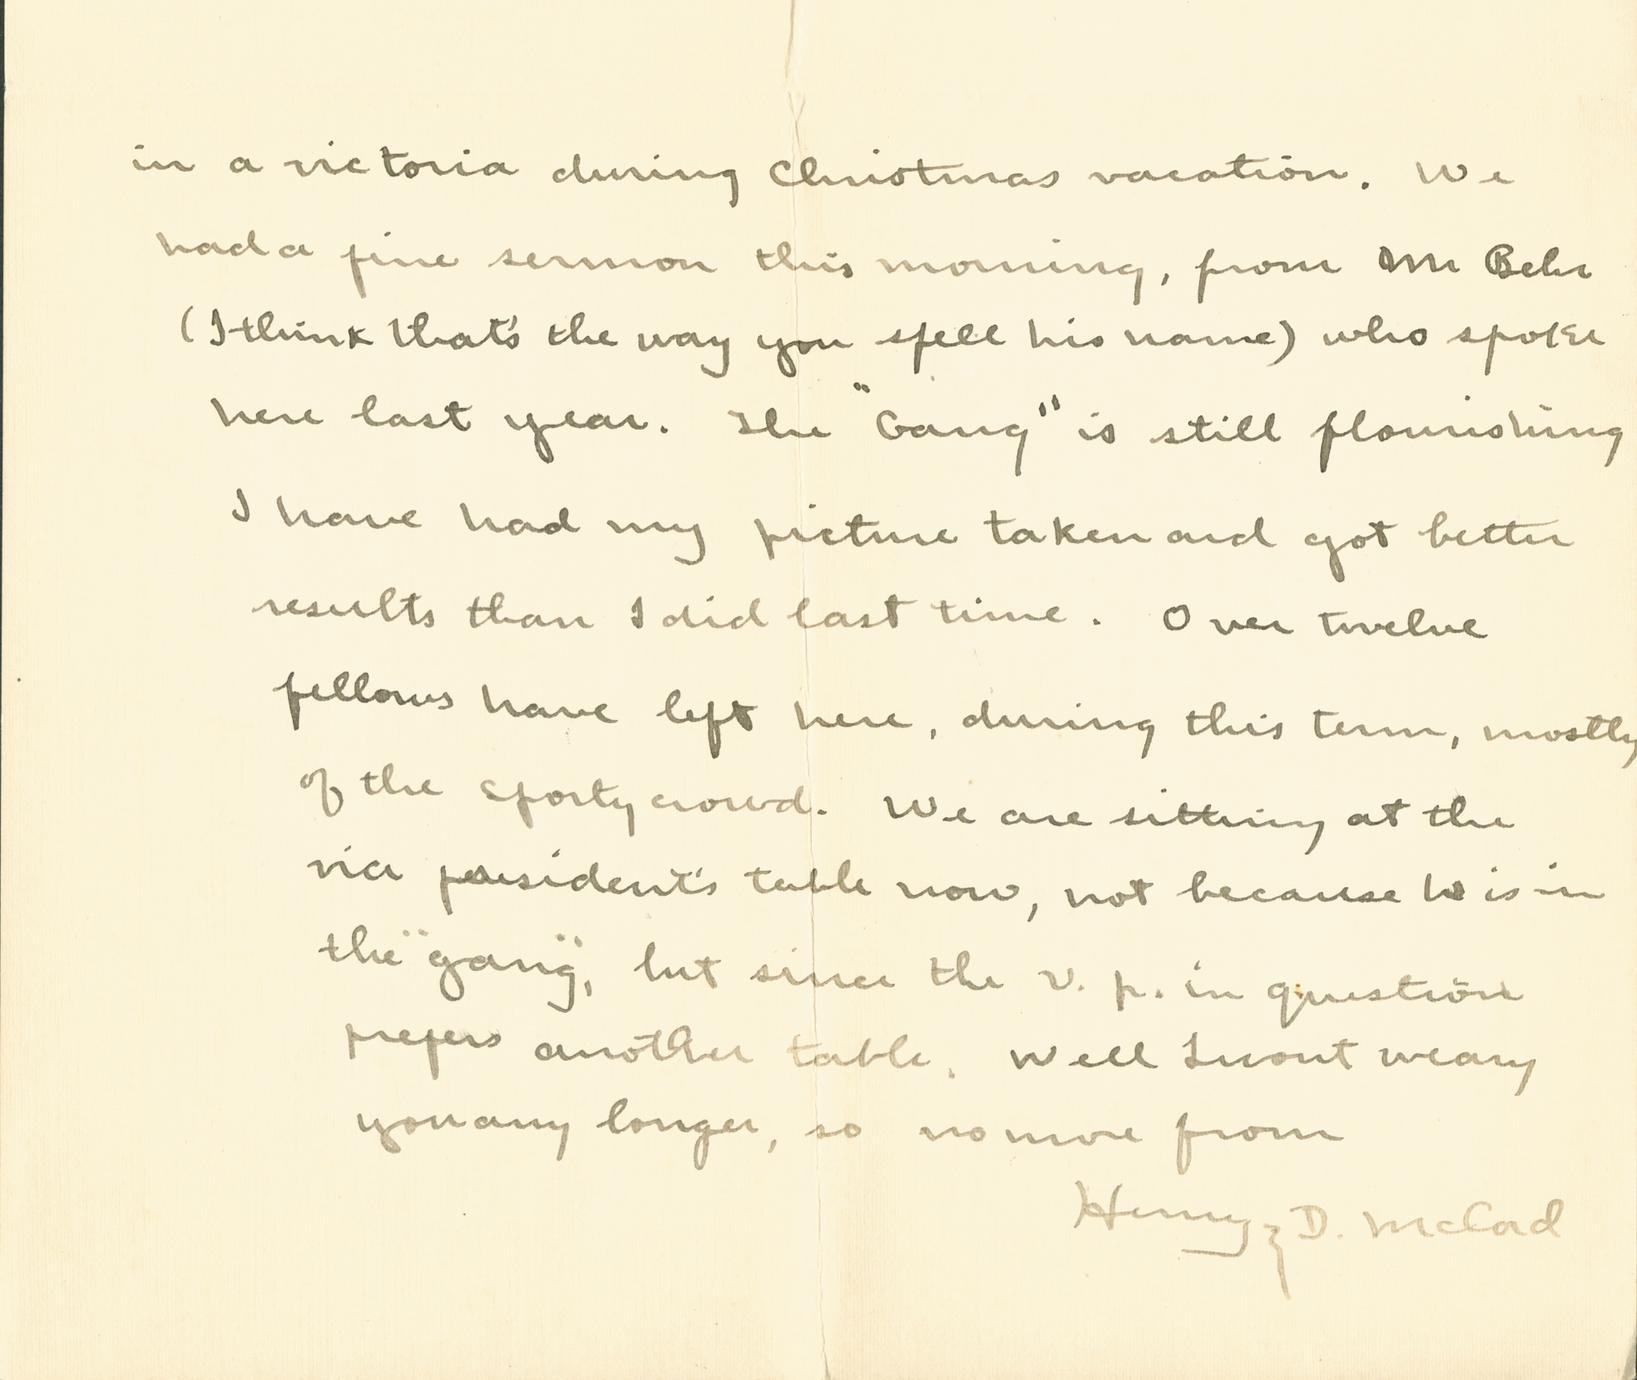 in a victoria during Christmas vacation. We
had a fine sermon this morning, from Mr Behr
(I think that's the way you spell his name) who spoke
here last year. The "Gang" is still flourishing
I have had my picture taken and got better
results than I did last time. Over twelve
fellows have left here, during this term, mostly
of the sporty crowd. We are sitting at the
vice president's table now, not because is in
the "gang", but since the v. p. in question
prefers another table. Well I wont weary
you any longer, so no more from
Henry D. McCord